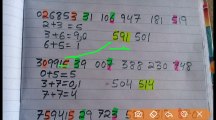 026853 31 106 947 181 519
2+3=5
3+6=9,0 591 501
6+5=1
309915 39 007 388 230 748
0+5=5
3+7=0,1 -504 514
7+7=4
759415 29 723 5